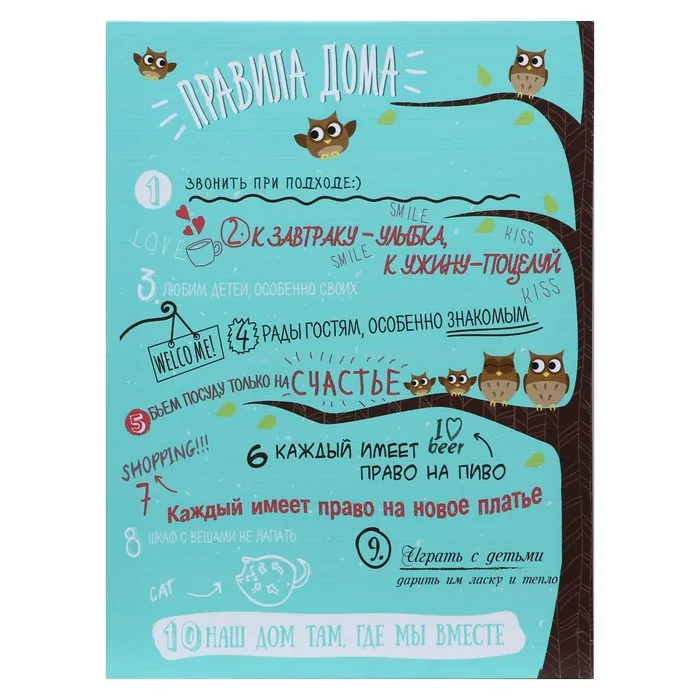 ПРАВИЛА ДОМА
1 ЗВОНИТЬ ПРИ ПОДХОДЕ:)
LOVE
SMILE
2. К ЗАВТРАКУ – УЛЫБКА,
KISS
SMILE
К УЖИНУ – ПОЦЕЛУЙ
KISS
3. ЛЮБИМ ДЕТЕЙ, ОСОБЕННО СВОИХ
WELCOME!
4 РАДЫ ГОСТЯМ, ОСОБЕННО ЗНАКОМЫМ
5 БЬЕМ ПОСУДУ ТОЛЬКО НА СЧАСТЬЕ
I beer
6 КАЖДЫЙ ИМЕЕТ
ПРАВО НА ПИВО
SHOPPING!!!
7 Каждый имеет право на новое платье
8 ШКАФ С ВЕЩАМИ НЕ ЛАПАТЬ
9. Играть с детьми
дарить им ласку и тепло
CAT
10 НАШ ДОМ ТАМ, ГДЕ МЫ ВМЕСТЕ